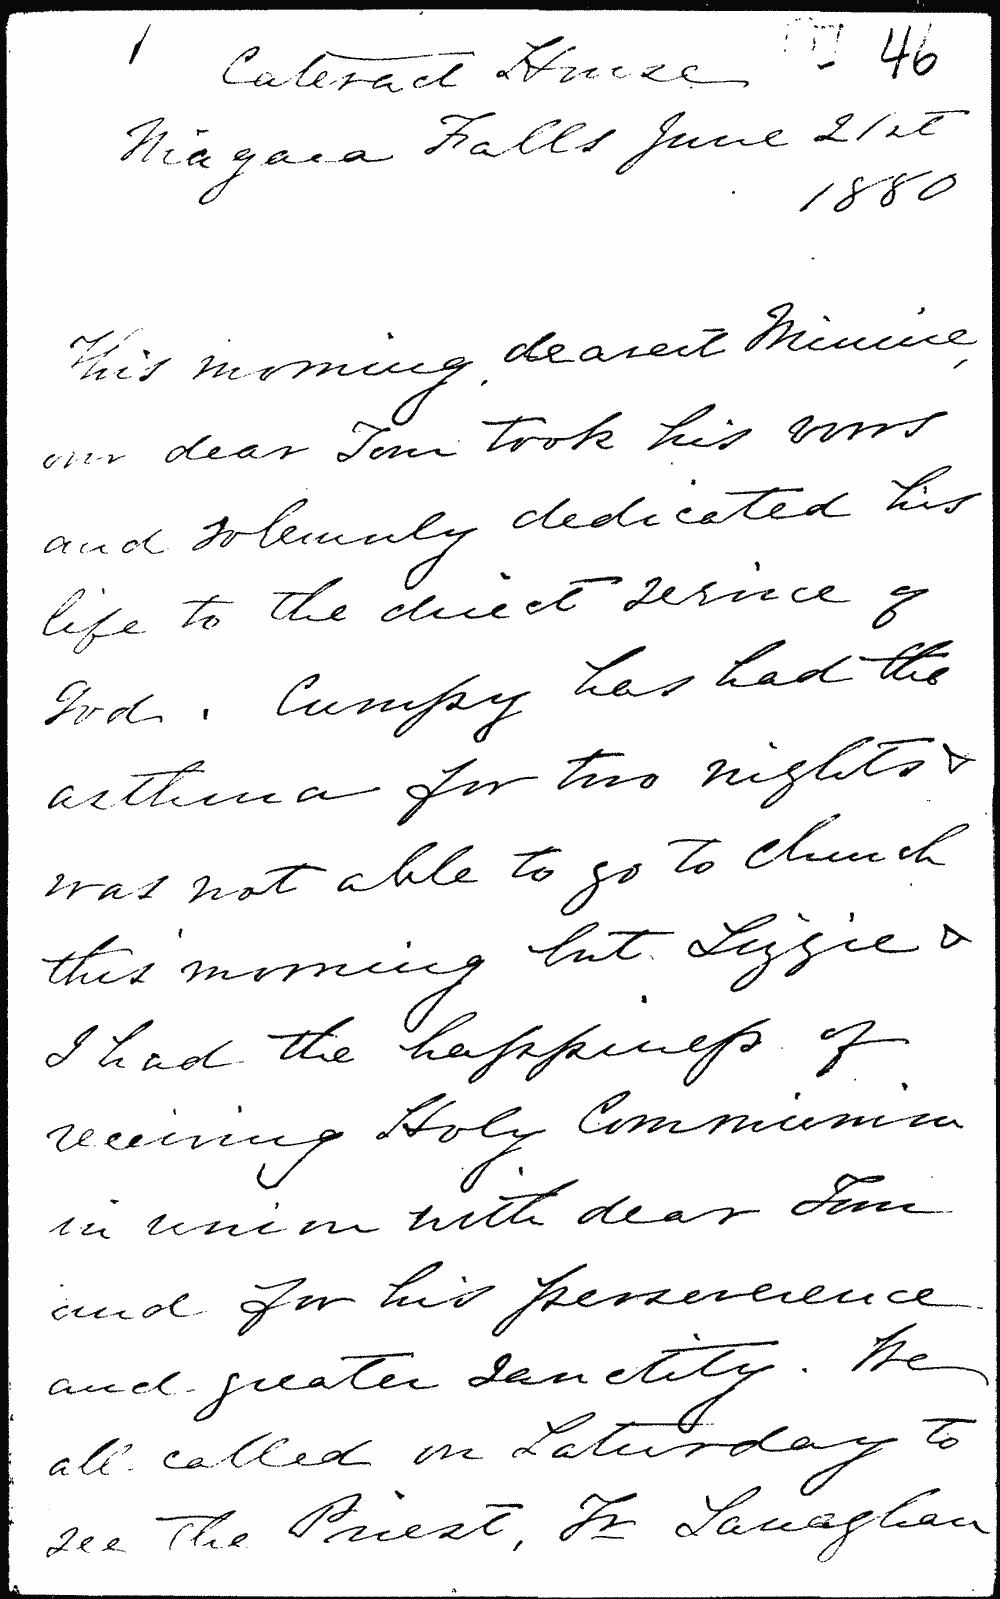 46
Cateract House
Niagara Falls June 21st
1880
This morning, dearest Minnie,
our dear Tom took his vows
and solemnly dedicated his
life to the direct service of
God. Cumpy has had the
asthma for two nights &
was not able to go to church
this morning but Lizzie &
I had the happiness of
receiving Holy Communion
in union with dear Tom
and for his perseverence
and greater sanctity. We
all called on Saturday to
see the Priest, Fr Lanaghan